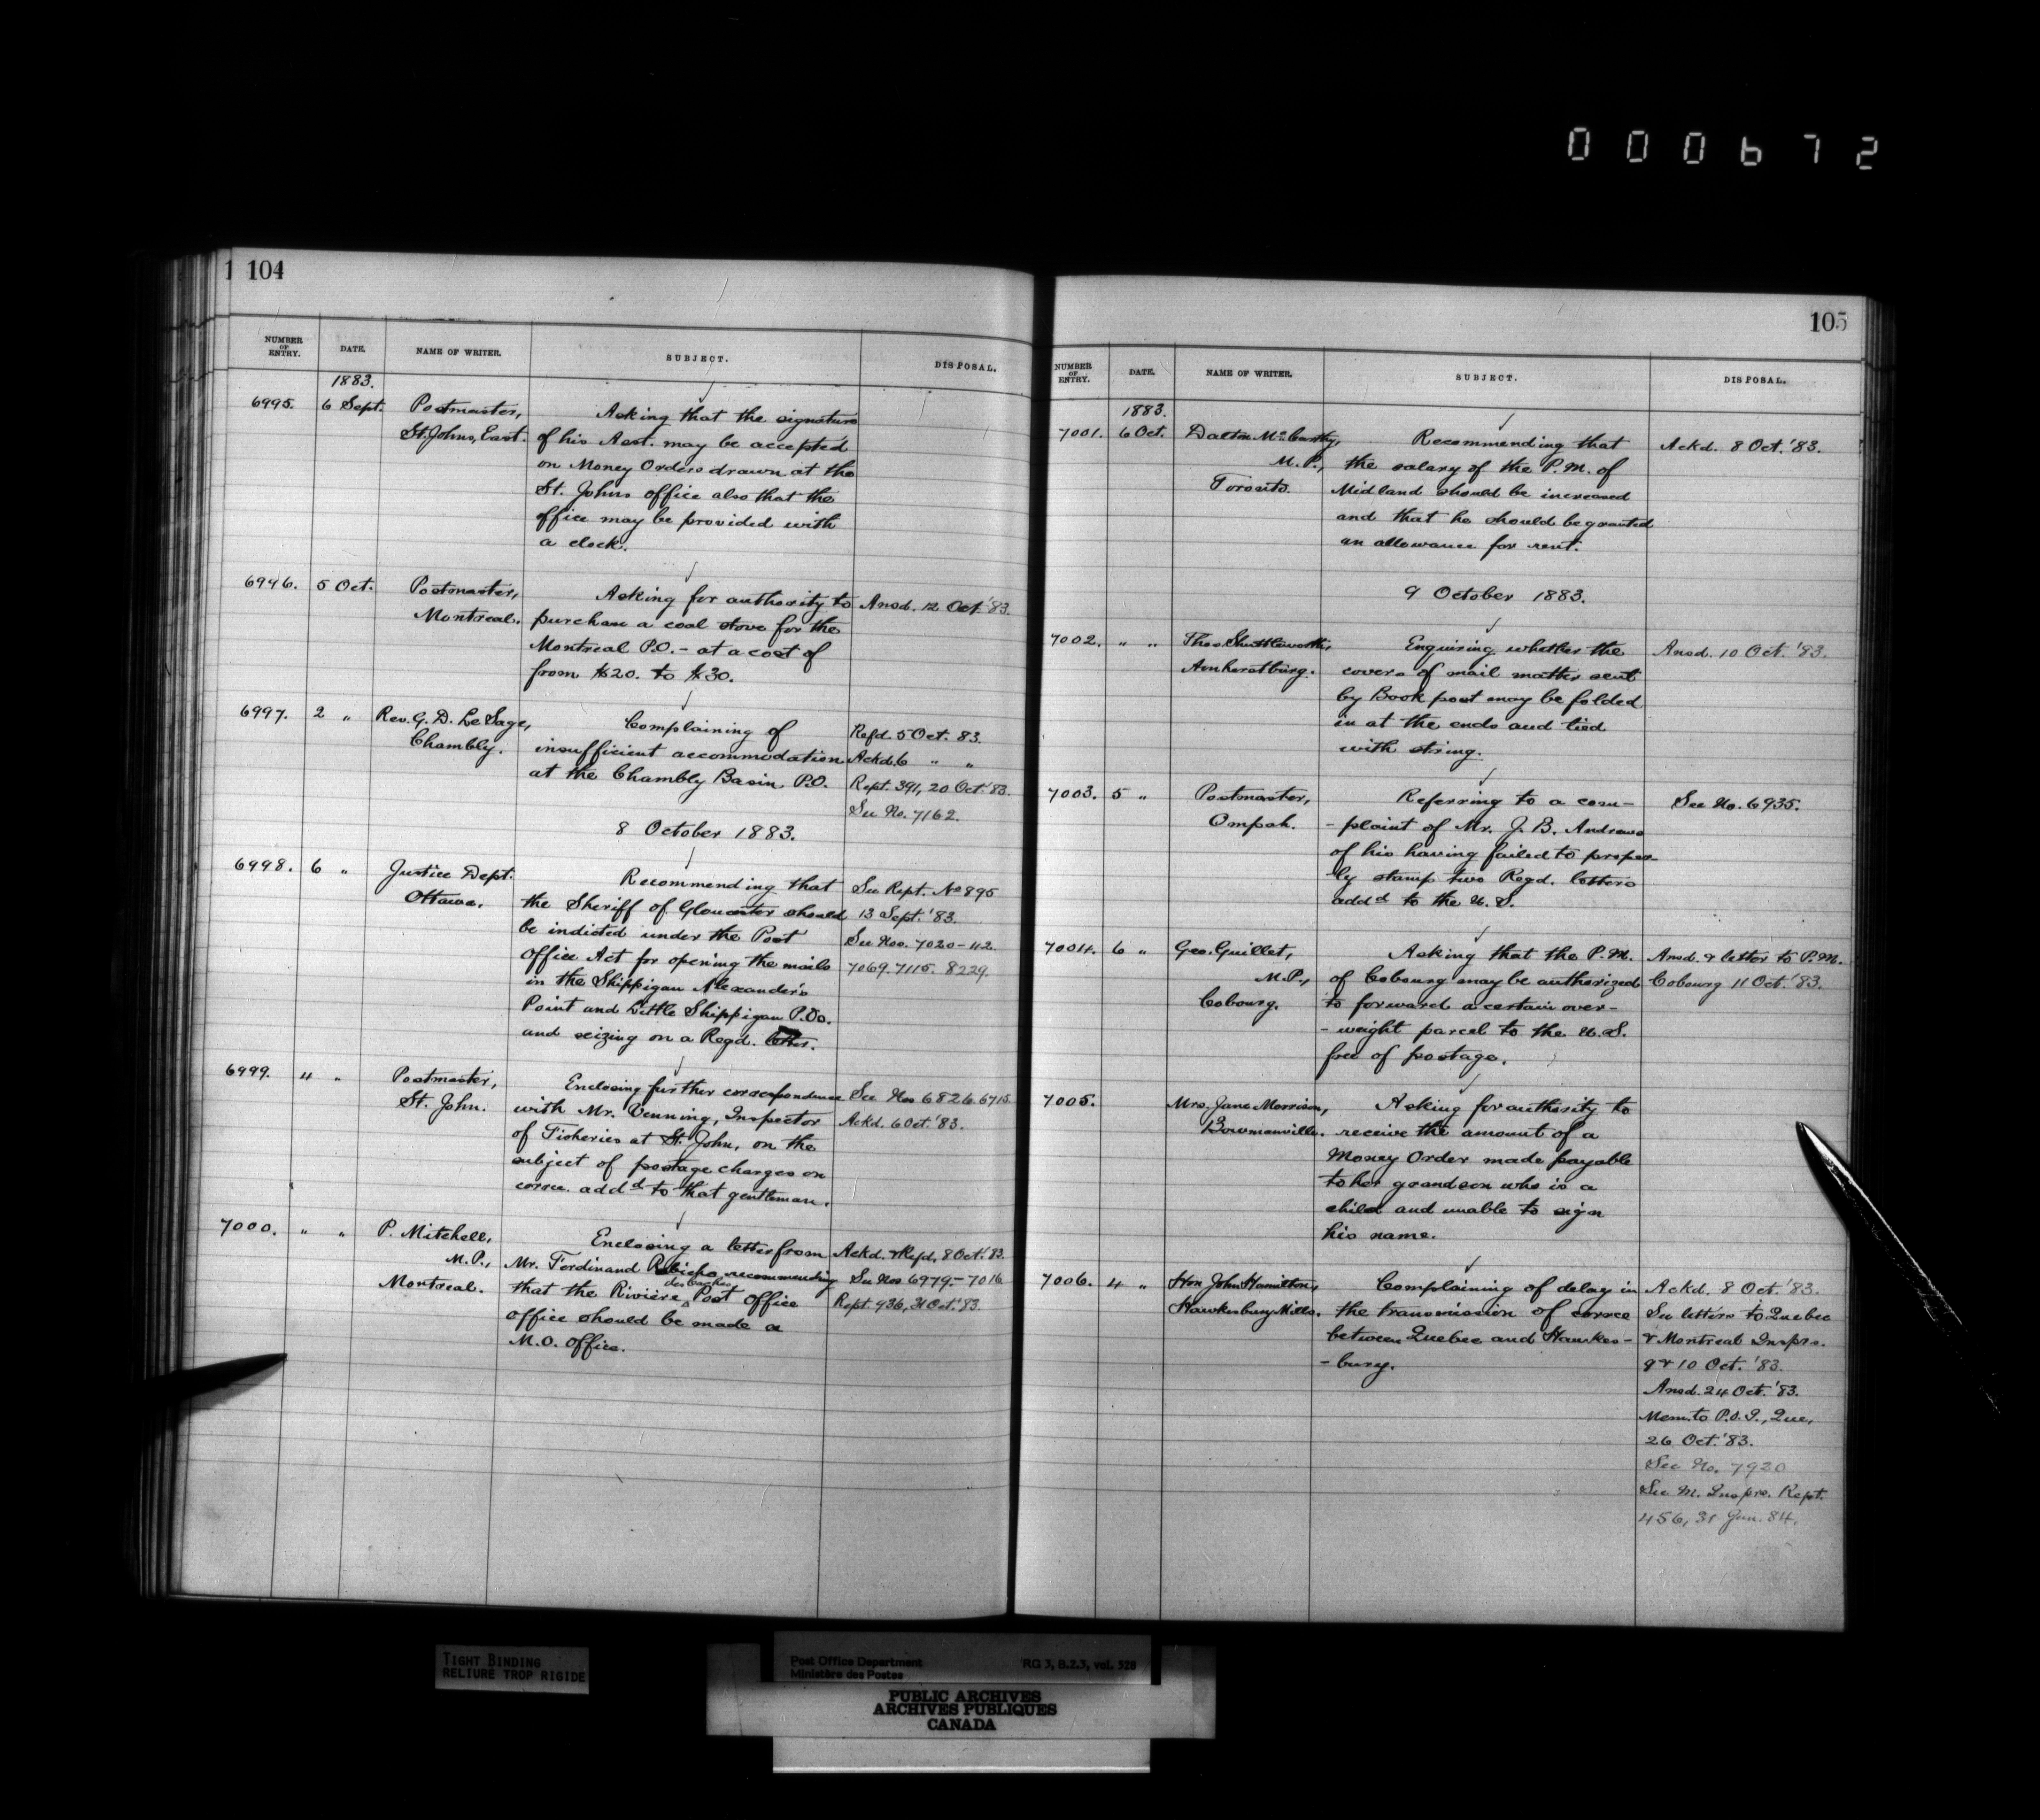 000672
1 104
NUMBER OF ENTRY. DATE. NAME OF WRITER. SUBJECT. DISPOSAL.
1883.
6995. 6 Sept. Postmaster, Asking that the signature
St. Johns, East. of his Asst. may be accepted
on Money Orders drawn at the
St. Johns office also that the
office may be provided with
a clock.
6996. 5 Oct. Postmaster, Asking for authority to Ansd. 12 Oct. '83.
Montreal. purchase a coal stove for the
Montreal P.O. - at a cost of
from $20. to $30.
6997. 2 " Rev. G. D. Le Sage, Complaining of Refd. 5 Oct. 83.
Chambly. insufficient accommodation Ackd. 6 " "
at the Chambly Basin, P.O. Rept. 391, 20 Oct. '83.
See No. 7162.
8 October 1883.
6998. 6 " Justice Dept. Recommending that See Rept. No 895
Ottawa. the Sheriff of Gloucester should 13 Sept. '83.
be indicted under the Post See Nos. 7020-42.
Office Act for opening the mails 7069. 7115. 8229.
in the Shippigan Alexander's
Point and Little Shippigan P.Os.
and seizing on a Regd. letter.
6999. 4 " Postmaster, Enclosing further correspondence See Nos 6826. 6715
St. John. with Mr. Venning, Inspector Ackd. 6 Oct. '83.
of Fisheries at St. John, on the
subject of postage charges on
corrce. addd to that gentleman.
7000. " " P. Mitchell, Enclosing a letter from Ackd. & Refd, 8 Oct. '83.
M.P., Mr. Ferdinand Robicho recommending See Nos 6979,- 7016
Montreal. that the Rivière des Caches Post Office Rept. 936, 31 Oct. '83.
office should be made a
M.O. Office.
105
NUMBER OF ENTRY. DATE. NAME OF WRITER. SUBJECT. DISPOSAL.
1883.
7001. 6 Oct. Dalton McCarthy, Recommending that Ackd. 8 Oct. '83.
M.P., the salary of the P.M. of
Toronto. Midland should be increased
and that he should be granted
an allowance for rent.
9 October 1883.
7002. " " Thos. Shuttleworth, Enquiring whether the Ansd. 10 Oct. '83.
Amherstburg. covers of mail matter sent
by Book post may be folded
in at the ends and tied
with string.
7003. 5 " Postmaster, Referring to a com- See No. 6935.
Ompah. -plaint of Mr. J. B. Andrews
of his having failed to proper-
-ly stamp two Regd. letters
addd to the U.S.
7004. 6 " Geo. Guillet, Asking that the P.M. Ansd. & letter to P.M.
M.P., of Cobourg may be authorized Cobourg 11 Oct. '83.
Cobourg. to forward a certain over-
-weight parcel to the U.S.
free of postage.
7005. Mrs. Jane Morrison, Asking for authority to
Bowmanville. receive the amount of a
Money Order made payable
to her grandson who is a
child and unable to sign
his name.
7006. 4 " Hon John Hamilton, Complaining of delay in Ackd. 8 Oct. '83.
Hawkesbury Mills. the transmission of corrce See letters to Quebec
between Quebec and Hawkes- & Montreal Insprs.
-bury. 9 & 10 Oct. '83.
Ansd. 24 Oct. '83.
Mem. to P.O.I., Que,
26 Oct. '83.
See No. 7920
See M. Insprs. Rept.
456, 31 Jan. 84.
TIGHT BINDING
RELIURE TROP RIGIDE
Post Office Department RG 3, B.2.3, vol. 528
Ministère des Postes
PUBLIC ARCHIVES
ARCHIVES PUBLIQUES
CANADA